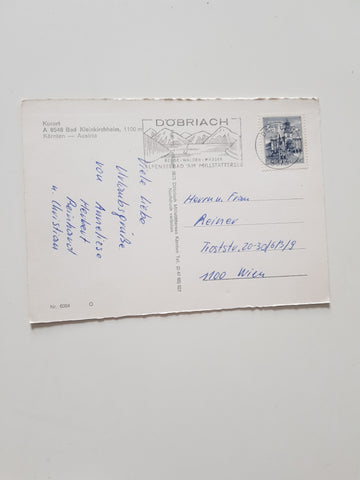 Kurort
A 9546 Bad Kleinkirchheim, 1100 m
Kärnten — Austria
DÖBRIACH
BERGE · WÄLDER · WASSER
ALPENSEEBAD AM MILLSTÄTTERSEE
Viele liebe
Urlaubsgrüße
von Anneliese
Herbert
Reinhard
u. Christian
Herrn u. Frau
Reiner
1100 Wien
Nr. 6084